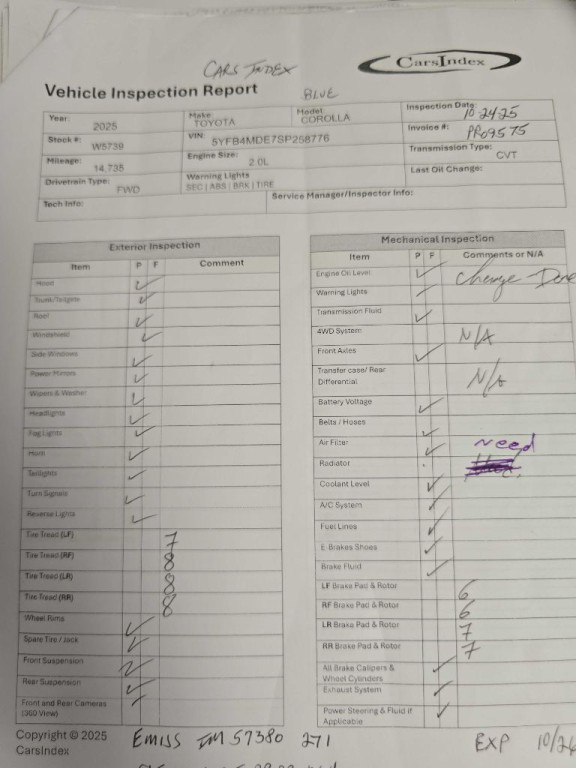 CARS INDEX
CarsIndex
Vehicle Inspection Report
BLUE
Year: 2025 Make: TOYOTA Model: COROLLA Inspection Date: 10-24-25
Stock #: W5739 VIN: 5YFB4MDE7SP258776 Invoice #: PRO9575
Mileage: 14,735 Engine Size: 2.0L Transmission Type: CVT
Drivetrain Type: FWD Warning Lights SEC | ABS | BRK | TIRE Last Oil Change:
Tech Info: Service Manager/Inspector Info:
Exterior Inspection
Item P F Comment
Hood ✓
Trunk/Tailgate ✓
Roof ✓
Windshield ✓
Side Windows ✓
Power Mirrors ✓
Wipers & Washer ✓
Headlights ✓
Fog Lights ✓
Horn ✓
Taillights ✓
Turn Signals ✓
Reverse Lights ✓
Tire Tread (LF) 7
Tire Tread (RF) 8
Tire Tread (LR) 8
Tire Tread (RR) 8
Wheel Rims ✓
Spare Tire / Jack ✓
Front Suspension ✓
Rear Suspension ✓
Front and Rear Cameras ✓
(360 View)
Mechanical Inspection
Item P F Comments or N/A
Engine Oil Level ✓ Change - Done
Warning Lights ✓
Transmission Fluid ✓
4WD System N/A
Front Axles ✓
Transfer case/ Rear
Differential N/A
Battery Voltage ✓
Belts / Hoses ✓
Air Filter ✓ Need
Radiator
Coolant Level ✓
A/C System ✓
Fuel Lines ✓
E-Brakes Shoes ✓
Brake Fluid ✓
LF Brake Pad & Rotor 6
RF Brake Pad & Rotor 6
LR Brake Pad & Rotor 7
RR Brake Pad & Rotor 7
All Brake Calipers & ✓
Wheel Cylinders
Exhaust System ✓
Power Steering & Fluid if ✓
Applicable
Copyright © 2025
CarsIndex
EMISS IM 57380 271 EXP 10/26